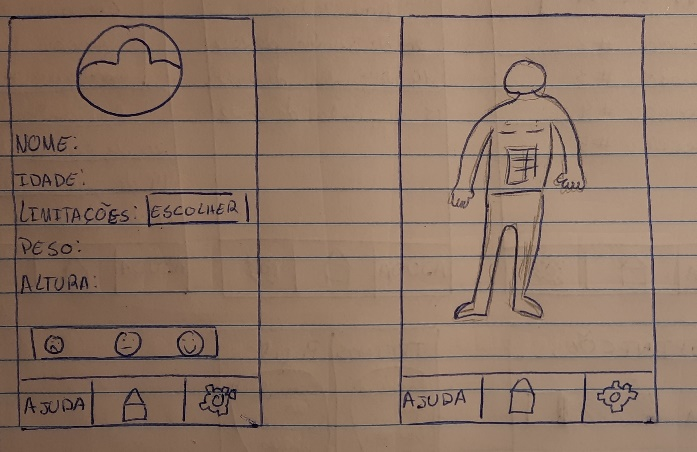 NOME:
IDADE:
LIMITAÇÕES: ESCOLHER
PESO:
ALTURA:
AJUDA
AJUDA